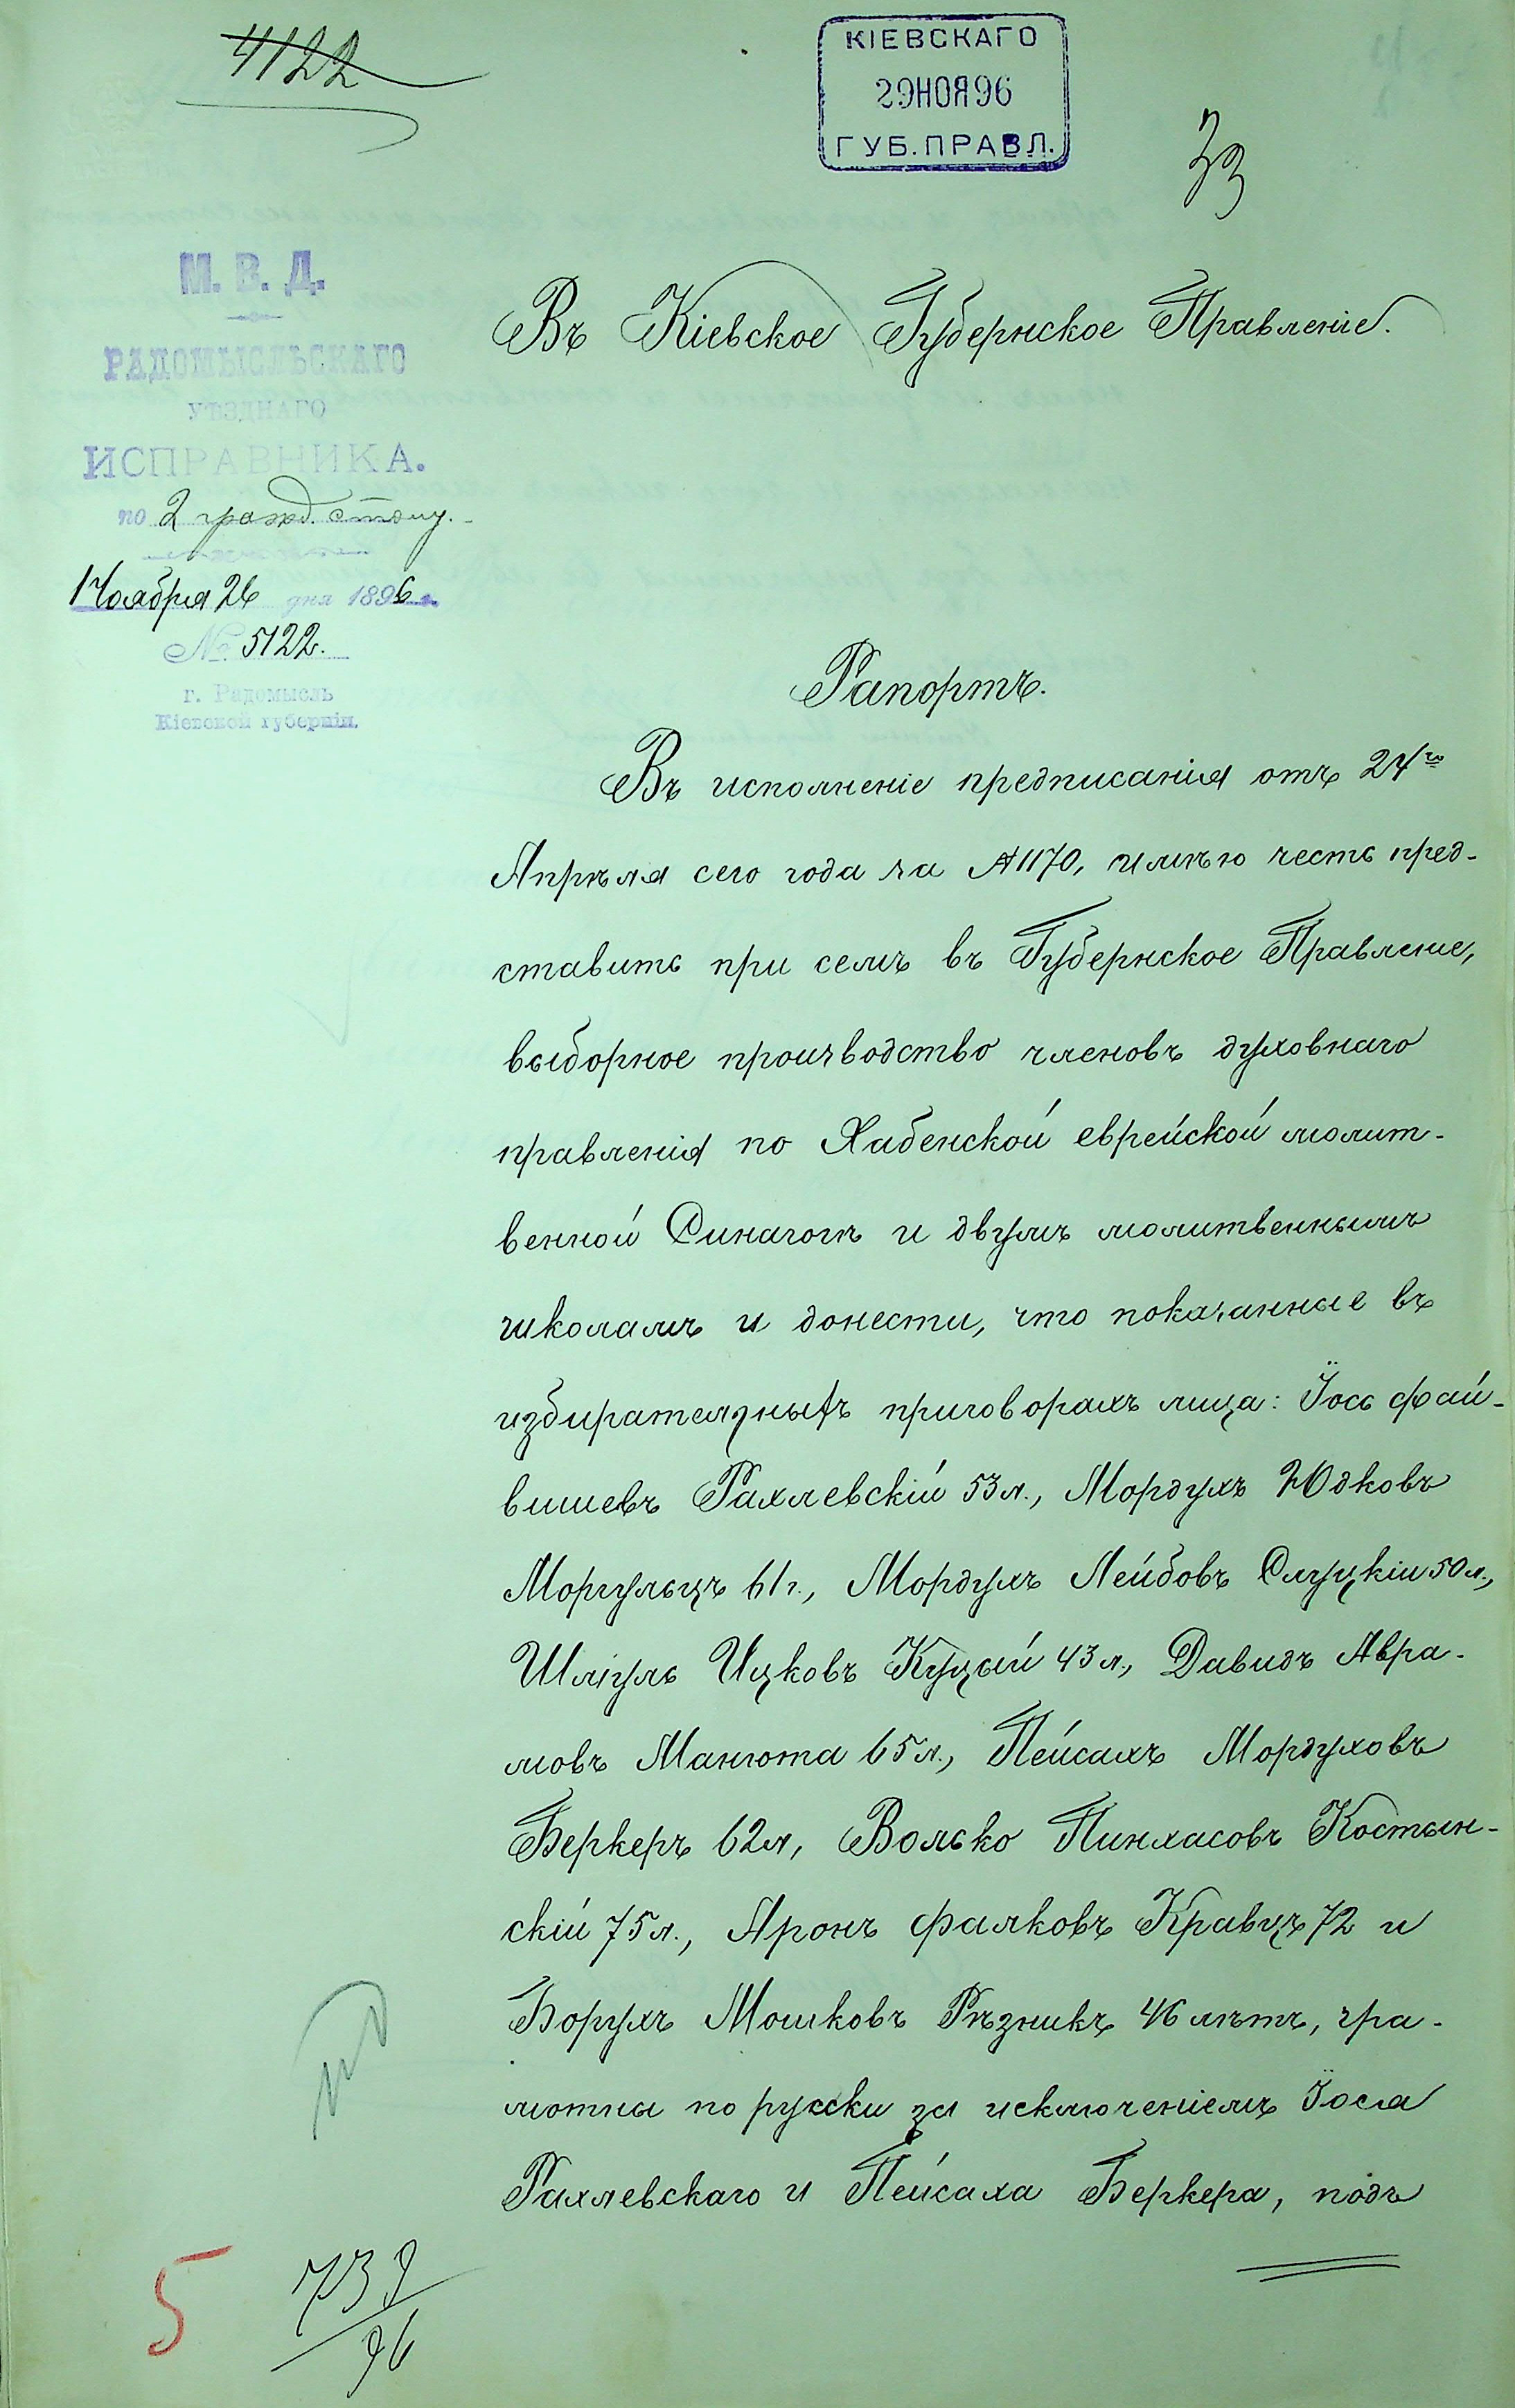 4122
КІЕВСКАГО
29НОЯ96
ГУБ.ПРАВЛ.
33
М. В. Д.
РАДОМЫСЛЬСКАГО
УѢЗДНАГО
ИСПРАВНИКА.
по 2 гражд. столу.
Ноября 26 дня 1896 г.
№ 5122.
г. Радомысль
Кіевской губерніи.
Въ Кіевское Губернское Правленіе.
Рапортъ.
Въ исполненіе предписанія отъ 24го
Апрѣля сего года за №1170, имѣю честь пред-
ставить при семъ въ Губернское Правленіе,
выборное производство членовъ духовнаго
правленія по Хабенской еврейской молит-
венной Синагогѣ и двумъ молитвеннымъ
школамъ и донести, что показанные въ
избирательныхъ приговорахъ лица: Iось Фай-
вишевъ Рахлевскій 53 л., Мордухъ Юдковъ
Моргулецъ 61 г., Мордухъ Лейбовъ Слуцкій 50 л.,
Шмуль Ицковъ Куцый 43 л., Давидъ Авра-
мовъ Манюта 65 л., Пейсахъ Мордуховъ
Беркеръ 62 л, Волько Пинхасовъ Костын-
скій 75 л., Аронъ Фалковъ Кравецъ 72 и
Борухъ Мошковъ Рѣзникъ 46 лѣтъ, гра-
мотны по русски за исключеніемъ Iося
Рахлевскаго и Пейсаха Беркера, подъ
5
739
96